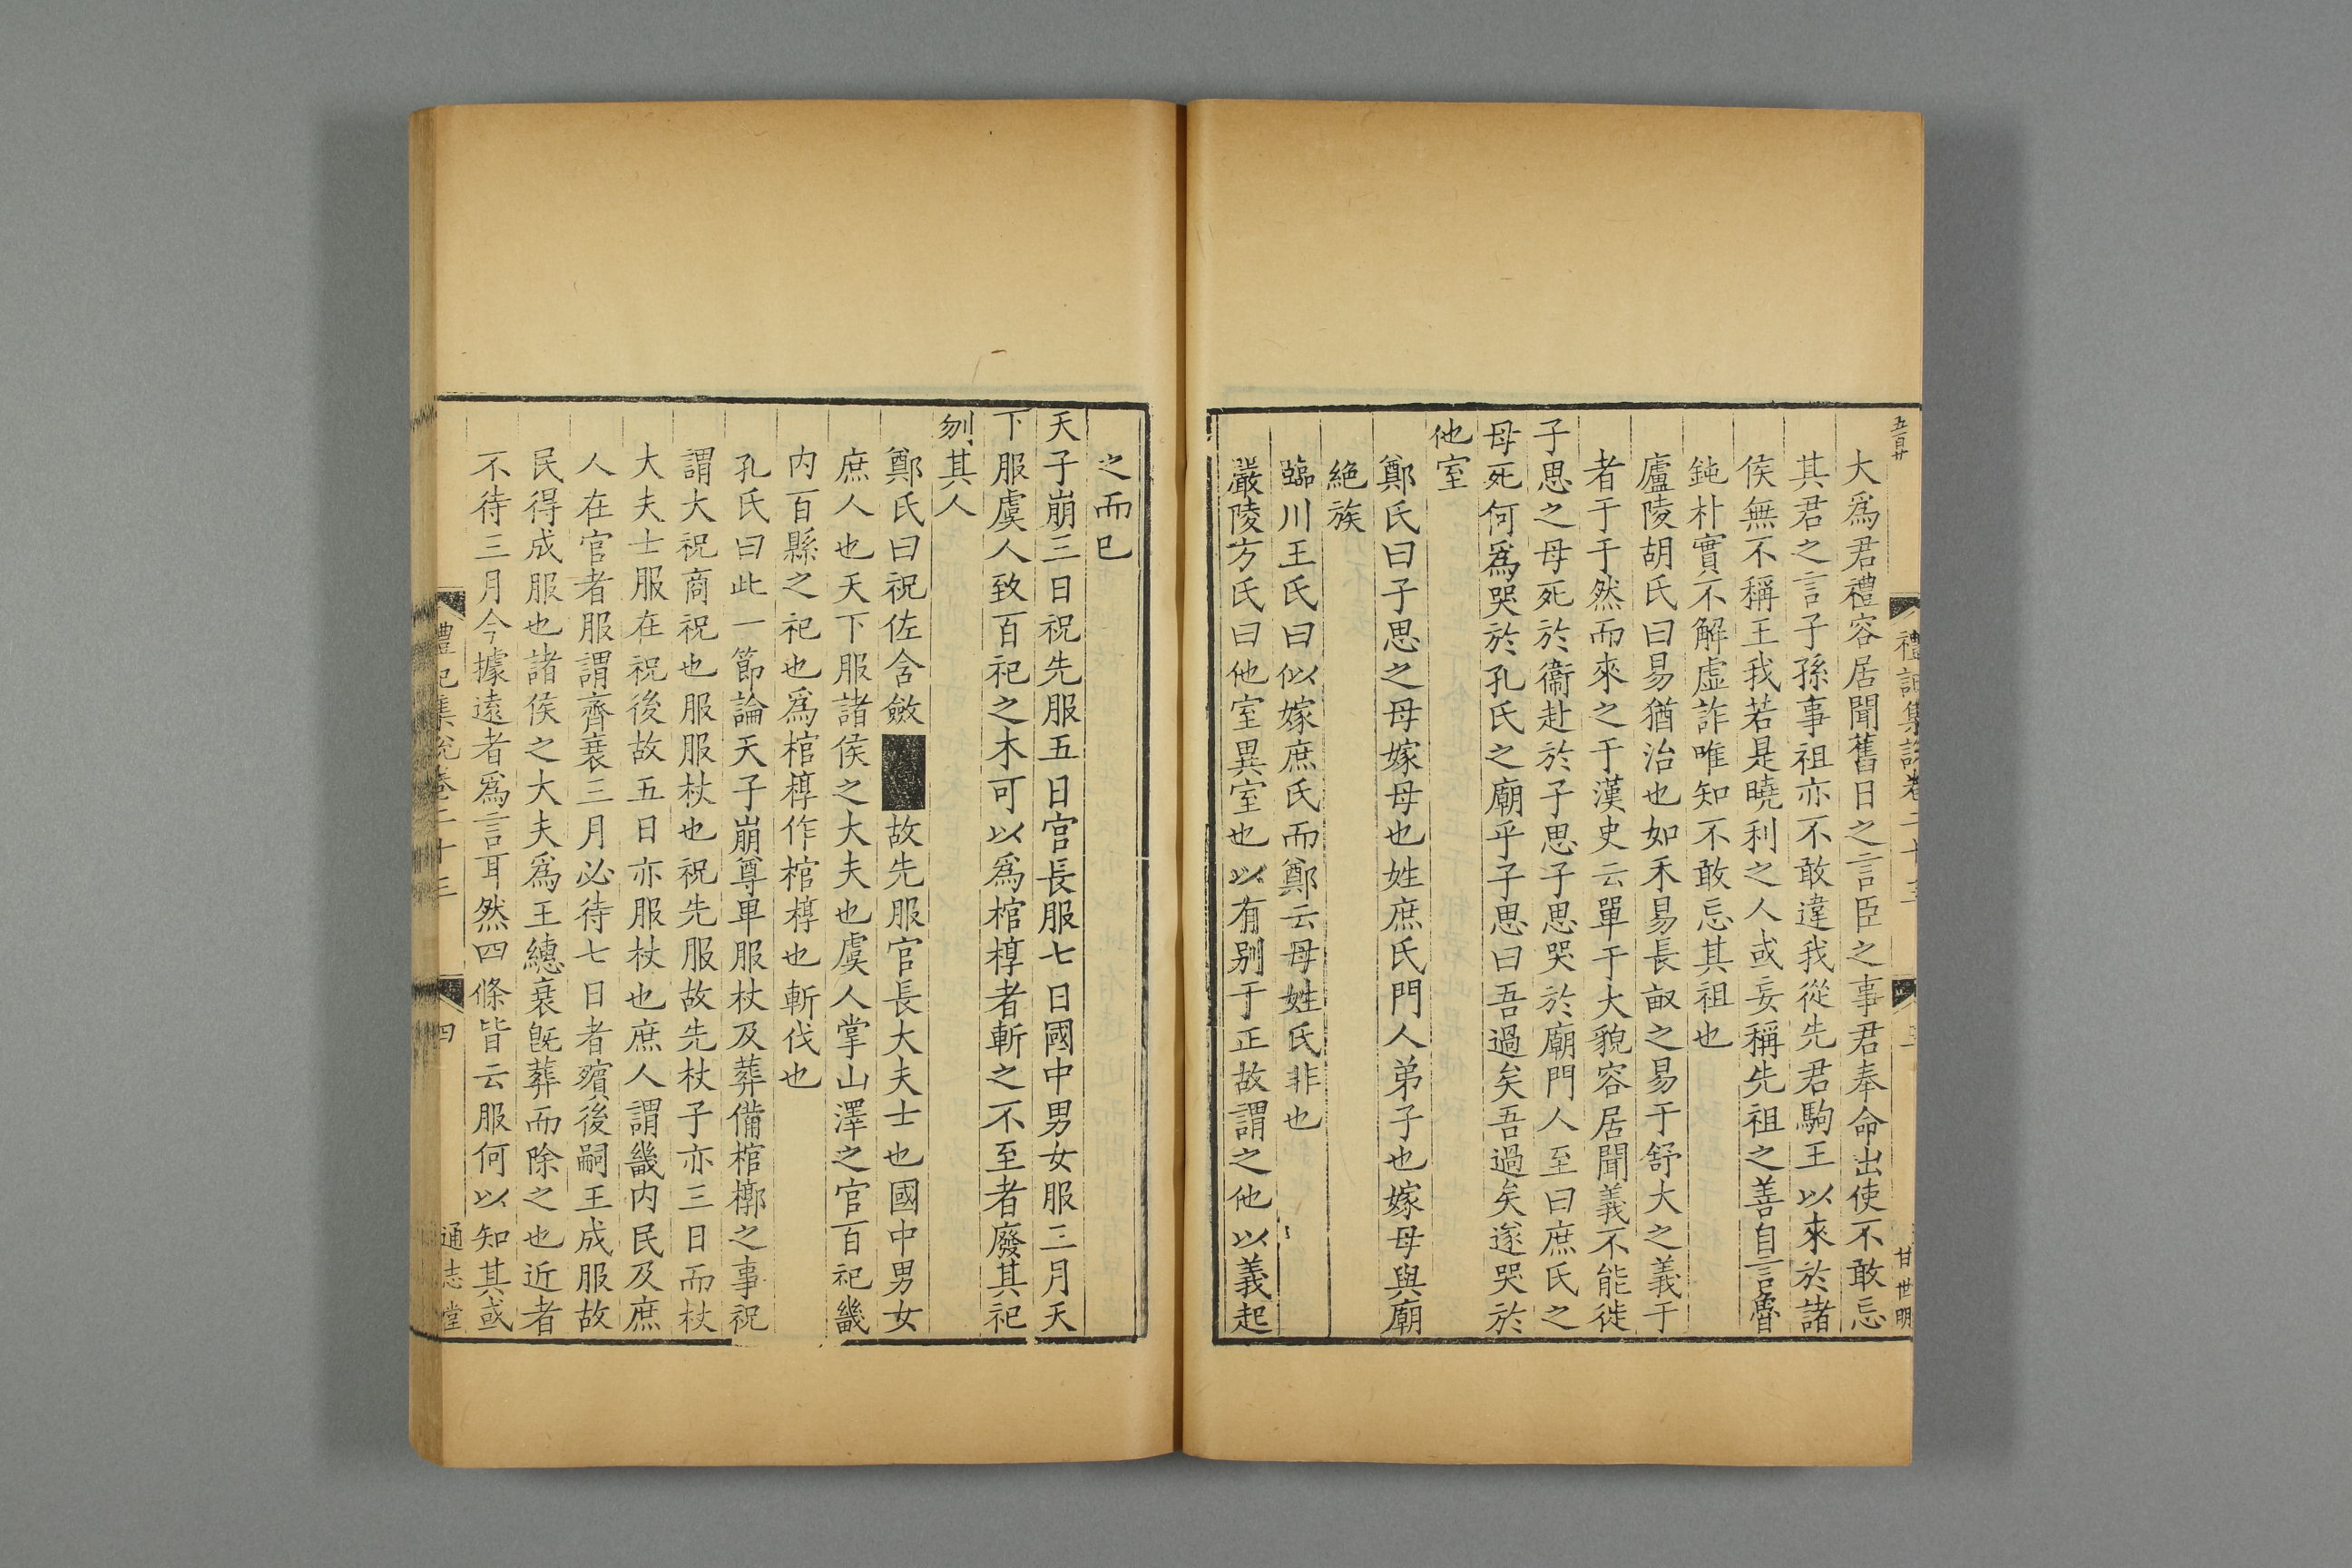 五百廿
禮記集說卷二十三
三
甘世明
大爲君禮容居聞舊日之言臣之事君奉命出使不敢忘
其君之言子孫事祖亦不敢違我從先君駒王以來於諸
侯無不稱王我若是曉利之人或妄稱先祖之善自言魯
鈍朴實不解虛詐唯知不敢忘其祖也
廬陵胡氏曰易猶治也如禾易長畝之易于舒大之義于
者于于然而來之于漢史云單于大貌容居聞義不能徙
子思之母死於衞赴於子思子思哭於廟門人至曰庶氏之
母死何爲哭於孔氏之廟乎子思曰吾過矣吾過矣遂哭於
他室
鄭氏曰子思之母嫁母也姓庶氏門人弟子也嫁母與廟
絕族
臨川王氏曰似嫁庶氏而鄭云母姓氏非也
嚴陵方氏曰他室異室也以有别于正故謂之他以義起
之而已
天子崩三日祝先服五日官長服七日國中男女服三月天
下服虞人致百祀之木可以爲棺椁者斬之不至者廢其祀
刎其人
鄭氏曰祝佐含斂故先服官長大夫士也國中男女
庶人也天下服諸侯之大夫也虞人掌山澤之官百祀畿
内百縣之祀也爲棺椁作棺椁也斬伐也
孔氏曰此一節論天子崩尊卑服杖及葬備棺槨之事祝
謂大祝商祝也服服杖也祝先服故先杖子亦三日而杖
大夫士服在祝後故五日亦服杖也庶人謂畿内民及庶
人在官者服謂齊衰三月必待七日者殯後嗣王成服故
民得成服也諸侯之大夫爲王繐衰旣葬而除之也近者
不待三月今據遠者爲言耳然四條皆云服何以知其或
禮記集說卷二十三
四
通志堂